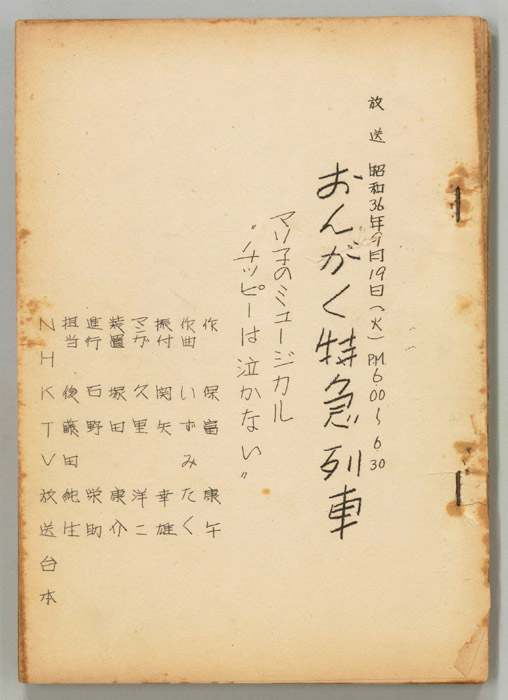 放送 昭和36年9月19日(火)PM6.00〜6.30
おんがく特急列車
マリ子のミュージカル
"チッピーは泣かない"
作 保富康午
作曲 いずみたく
振付 関矢幸雄
マンガ 久里洋二
装置 塚田康介
進行 石野栄助
担当 後藤田純生
NHKTV放送台本